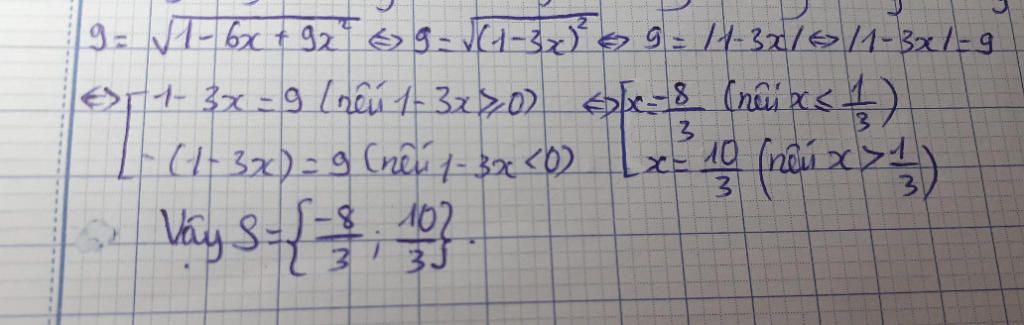 9 = √(1 - 6x + 9x²) ⇔ 9 = √((1 - 3x)²) ⇔ 9 = |1 - 3x| ⇔ |1 - 3x| = 9
⇔ [ 1 - 3x = 9 (nếu 1 - 3x ≥ 0) ⇔ [ x = -8/3 (nếu x ≤ 1/3)
-(1 - 3x) = 9 (nếu 1 - 3x < 0) x = 10/3 (nếu x > 1/3)
Vậy S = {-8/3 ; 10/3}.